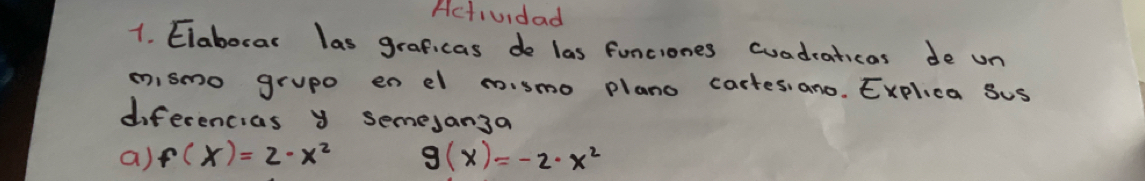 Actividad
1. Elaborar las graficas de las funciones cuadraticas de un
mismo grupo en el mismo plano cartesiano. Explica sus
diferencias y semejanza
a) f(x)= 2·x² g(x)=-2·x²